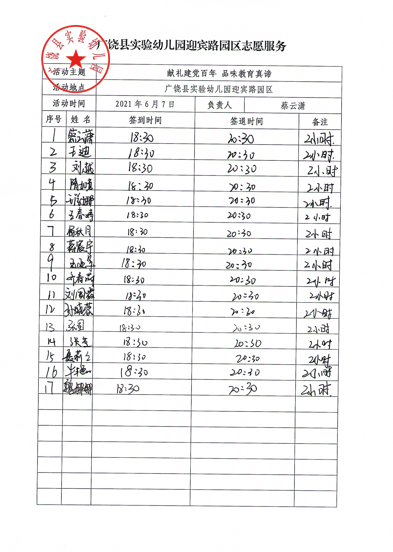 广饶县实验幼儿园迎宾路园区志愿服务
广饶县实验幼儿园
活动主题 献礼建党百年 品味教育真谛
活动地点 广饶县实验幼儿园迎宾路园区
活动时间 2021年6月7日 负责人 蔡云潇
序号 姓名 签到时间 签退时间 备注
1 18:30 20:30 2小时.
2 王迪 18:30 20:30 2小时.
3 刘越 18:30 20:30 2小时.
4 18:30 20:30 2小时.
5 18:30 20:30 2小时.
6 18:30 20:30 2小时
7 18:30 20:30 2小时.
8 18:30 20:30 2小时
9 18:30 20:30 2小时.
10 18:30 20:30 2小时
11 18:30 20:30 2小时
12 18:30 20:30 2小时.
13 18:30 20:30 2小时
14 18:30 20:30 2小时
15 18:30 20:30 2小时
16 18:30 20:30 2小时
17 18:30 20:30 2小时.